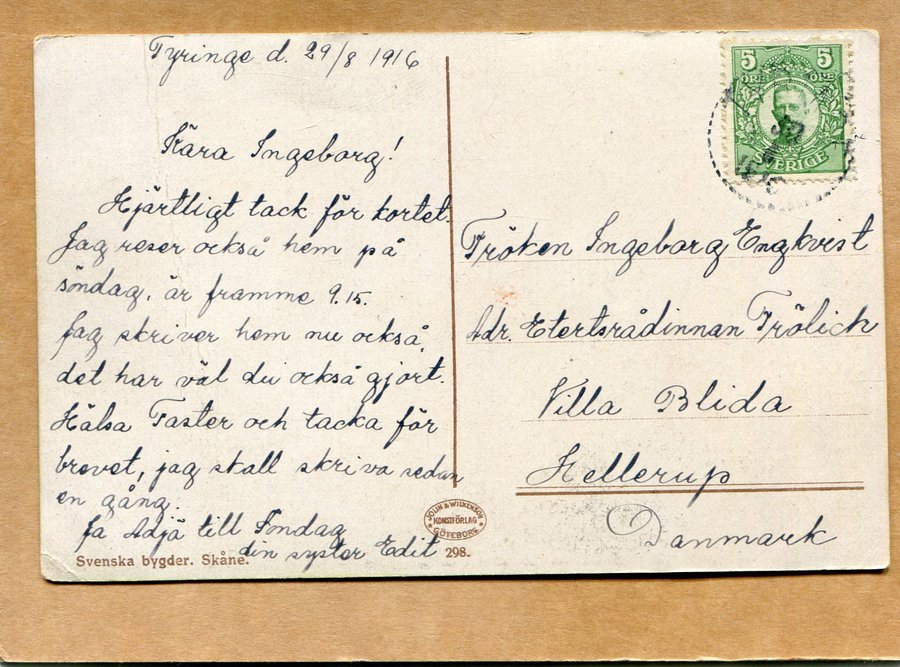 Tyringe d. 29/8 1916
Kära Ingeborg!
Hjärtligt tack för kortet.
Jag reser också hem på
söndag, är framme 9.15.
Jag skriver hem nu också,
det har väl du också gjort.
Hälsa Faster och tacka för
brevet, jag skall skriva sedan
en gång.
Ja Adjö till Söndag
din syster Edit
Svenska bygder. Skåne.
JOHN & WILKENSON
KONSTFÖRLAG
GÖTEBORG
298.
5 5
ÖRE ÖRE
SVERIGE
Fröken Ingeborg Engkvist
Adr. Etertsrådinnan Frölich
Villa Blida
Hellerup
Danmark